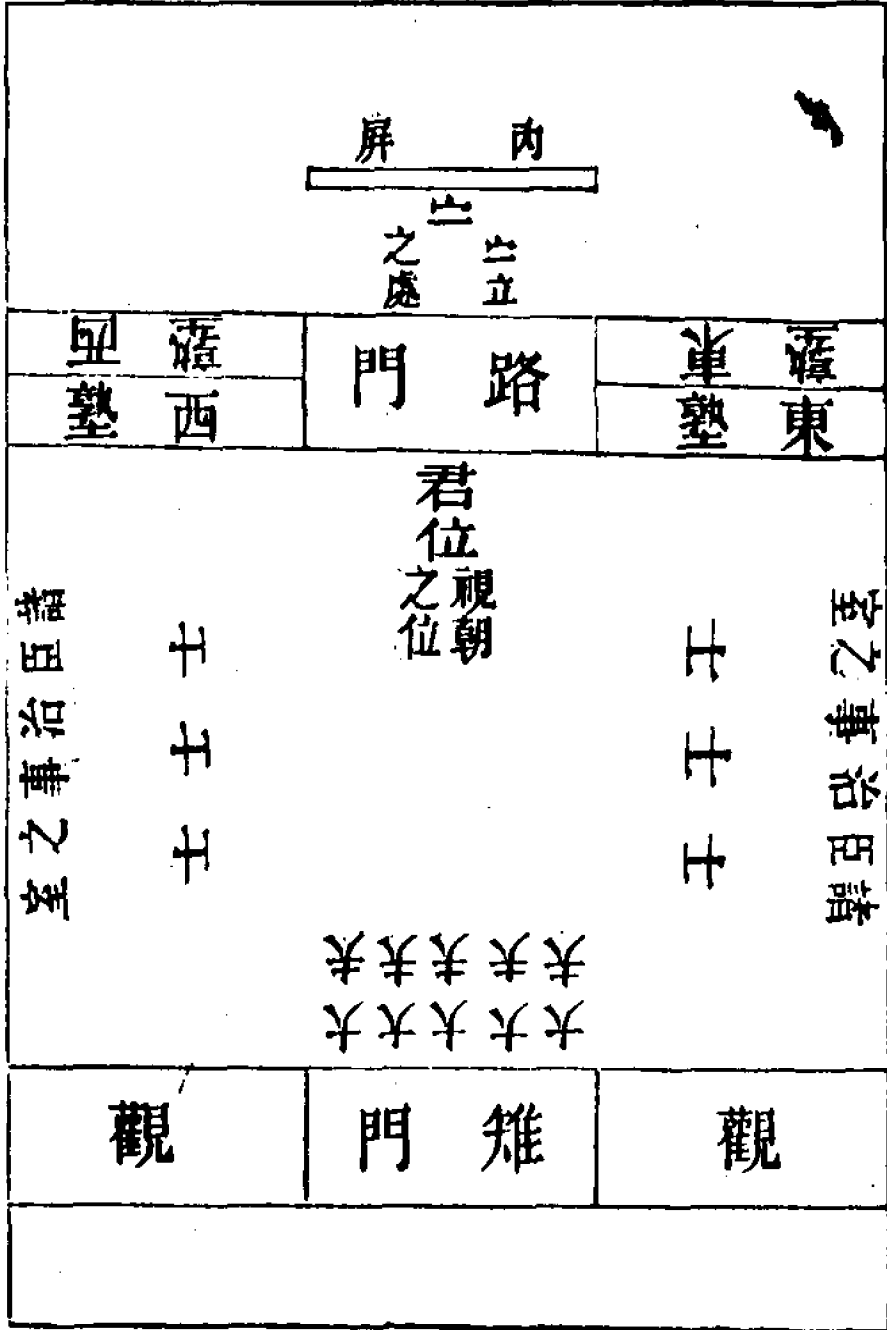 內屏
宁
宁立之處
東塾
路門
西塾
東塾
西塾
君位
視朝之位
諸臣治事之室
士
士
士
士
士
士
諸臣治事之室
大夫
大夫
大夫
大夫
大夫
觀
雉門
觀